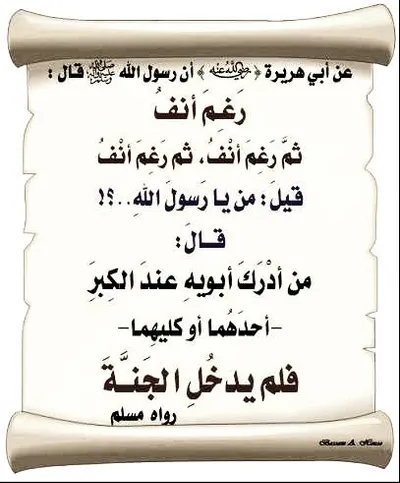 عن أبي هريرة ﴿رضي الله عنه﴾ أن رسول الله ﷺ قال :
رَغِمَ أنفُ
ثمَّ رَغِمَ أنْفُ، ثم رَغِمَ أنْفُ
قيلَ: من يا رَسولَ اللهِ..؟!
قــالَ:
من أدْرَكَ أبويهِ عندَ الكِبرَ
-أحدَهُما أو كليهِما-
فلم يدخُلِ الجَنــَّةَ
رواه مسلم
Bassam A.